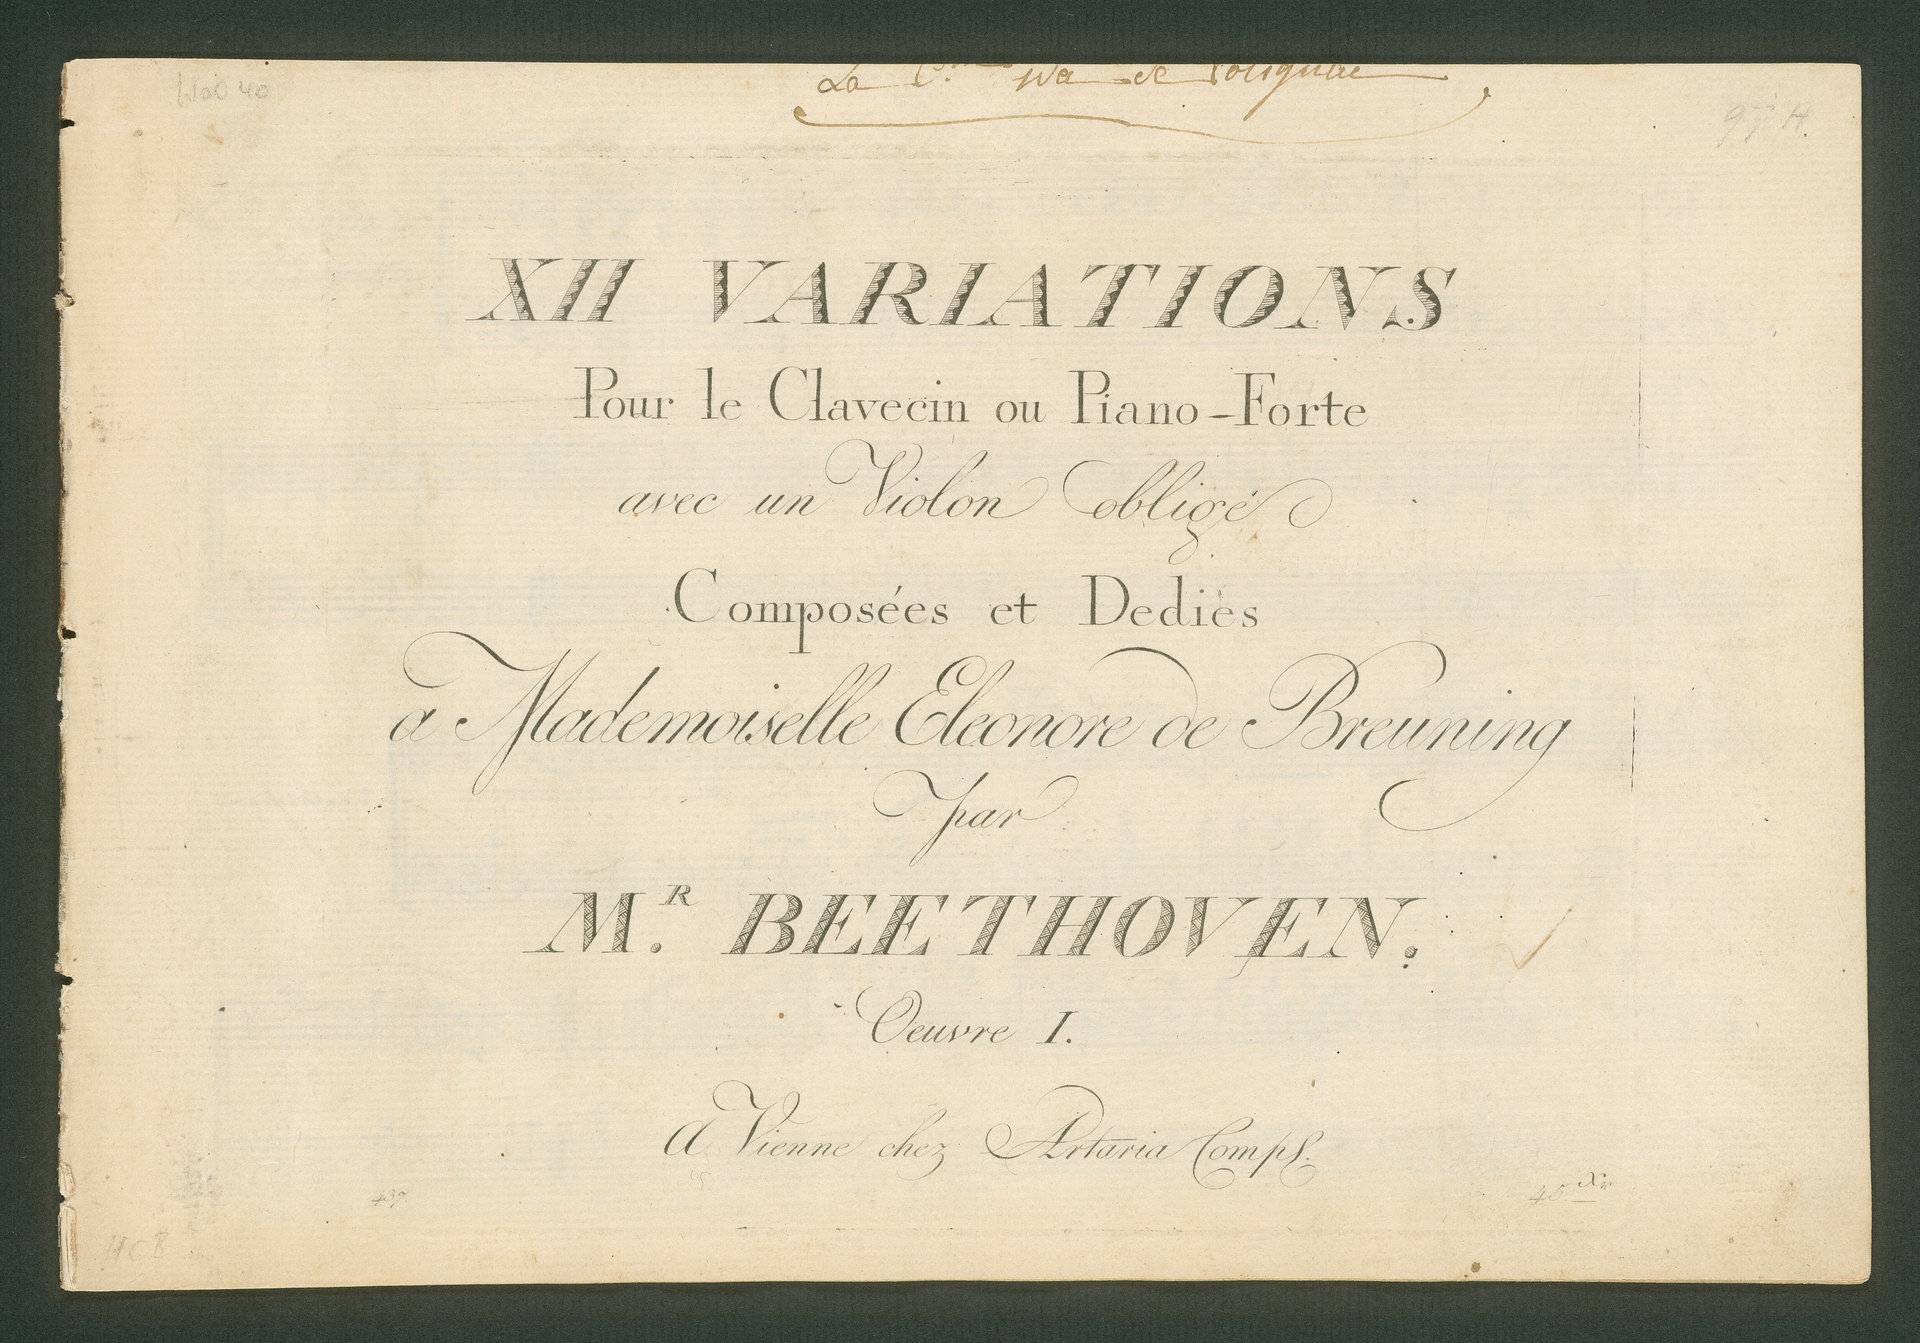 WoO 40
La de Polignac
XII VARIATIONS
Pour le Clavecin ou Piano-Forte
avec un Violon obligé
Composées et Dediès
a Mademoiselle Eleonore de Breuning
par
M.R BEETHOVEN.
Oeuvre I.
A Vienne chez Artaria Comp.
437.
45 Xr
HCB